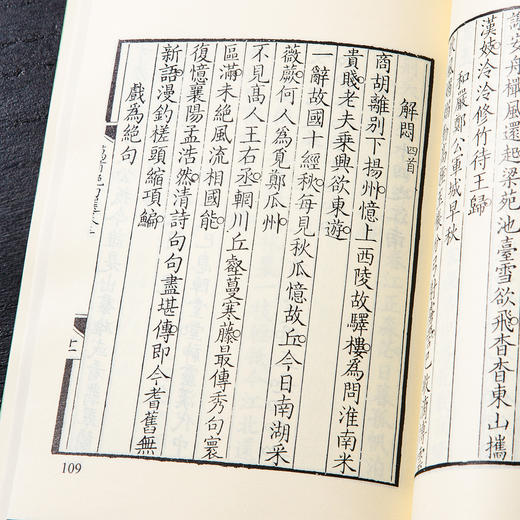 安舟楫風還起梁苑池臺雪欲飛杳杳東山攜
漢妓泠泠修竹待王歸
和嚴鄭公軍城早秋
解悶四首
商胡離別下揚州憶上西陵故驛樓為問淮南米
貴賤老夫乘興欲東遊
一辭故國十經秋每見秋瓜憶故丘今日南湖采
薇蕨何人為覓鄭瓜州
不見高人王右丞輞川丘壑蔓寒藤最傳秀句寰
區滿未絕風流相國能
復憶襄陽孟浩然清詩句句盡堪傳即今耆舊無
新語漫釣槎頭縮項鯿
戲為絕句
109